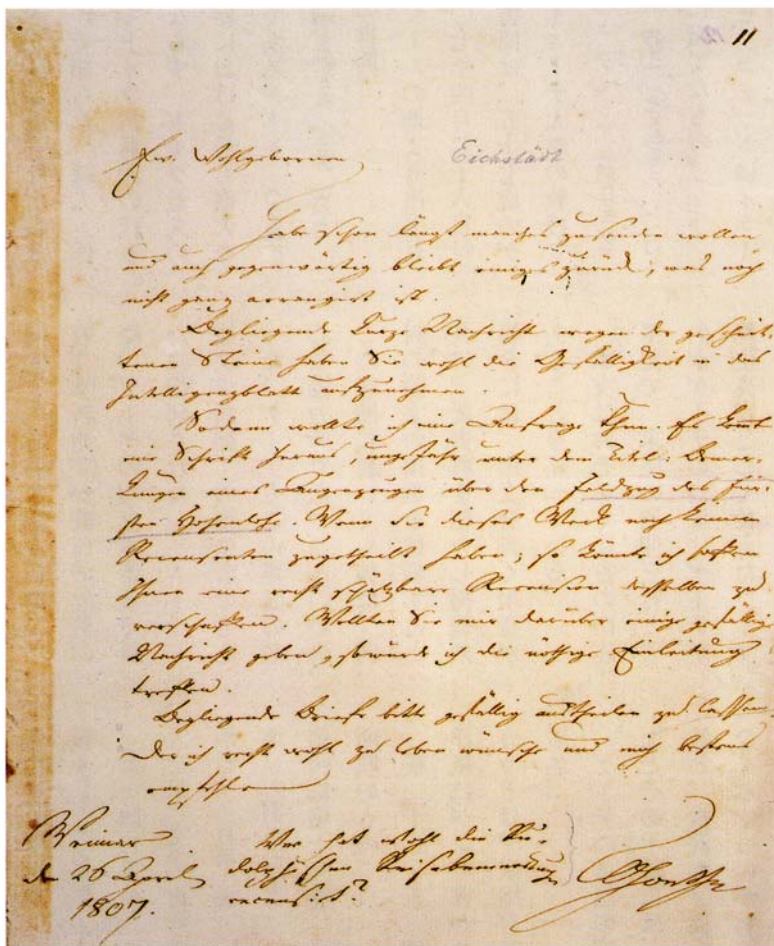 11
Ew. Wohlgebornen Eichstädt
habe schon längst manches zusenden wollen
und auch gegenwärtig bleibt einiges zurück, was noch
nicht ganz arrangirt ist.
Beyliegende kurze Nachricht wegen der geschnit-
tenen Steine haben Sie wohl die Gefälligkeit in das
Intelligenzblatt aufzunehmen.
Sodann wollte ich eine Anfrage thun. Es kommt
eine Schrift heraus, ungefähr unter dem Titel: Bemer-
kungen eines Augenzeugen über den Feldzug des Für-
sten Hohenlohe. Wenn Sie dieses Werck noch keinem
Recensenten zugetheilt haben; so könnte ich hoffen
Ihnen eine recht schätzbare Recension desselben zu
verschaffen. Wollten Sie mir darüber einige gefällige
Nachricht geben, so würde ich die nöthige Einleitung
treffen.
Beyliegende Briefe bitte gefällig austheilen zu lassen
Der ich recht wohl zu leben wünsche und mich bestens
empfehle
Weimar
den 26 April
1807.
Wer hat wohl die Ru-
dolphischen Reisebemerkungen
recensirt?
Goethe